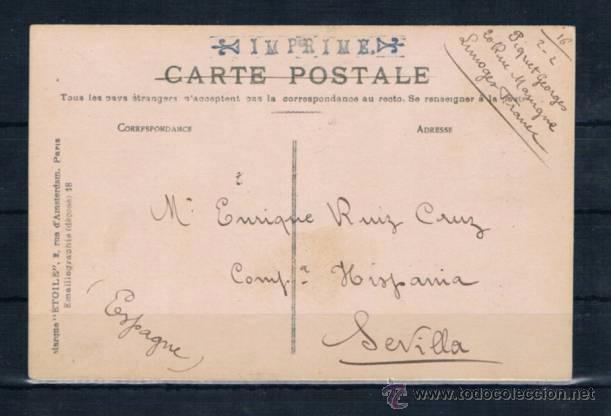 IMPRIMÉ.
CARTE POSTALE
Tous les pays étrangers n'acceptent pas la correspondance au recto. Se renseigner à la
CORRESPONDANCE
ADRESSE
Piquet Georges
20 Rue
Limoges France
2-2
16
Marque "ETOILE", 2, rue d'Amsterdam, Paris
Emaillographie (déposé) 18
Mr Enrique Ruiz Cruz
Comp.a Hispania
Sevilla
(Espagne)
todocoleccion
www.todocoleccion.net